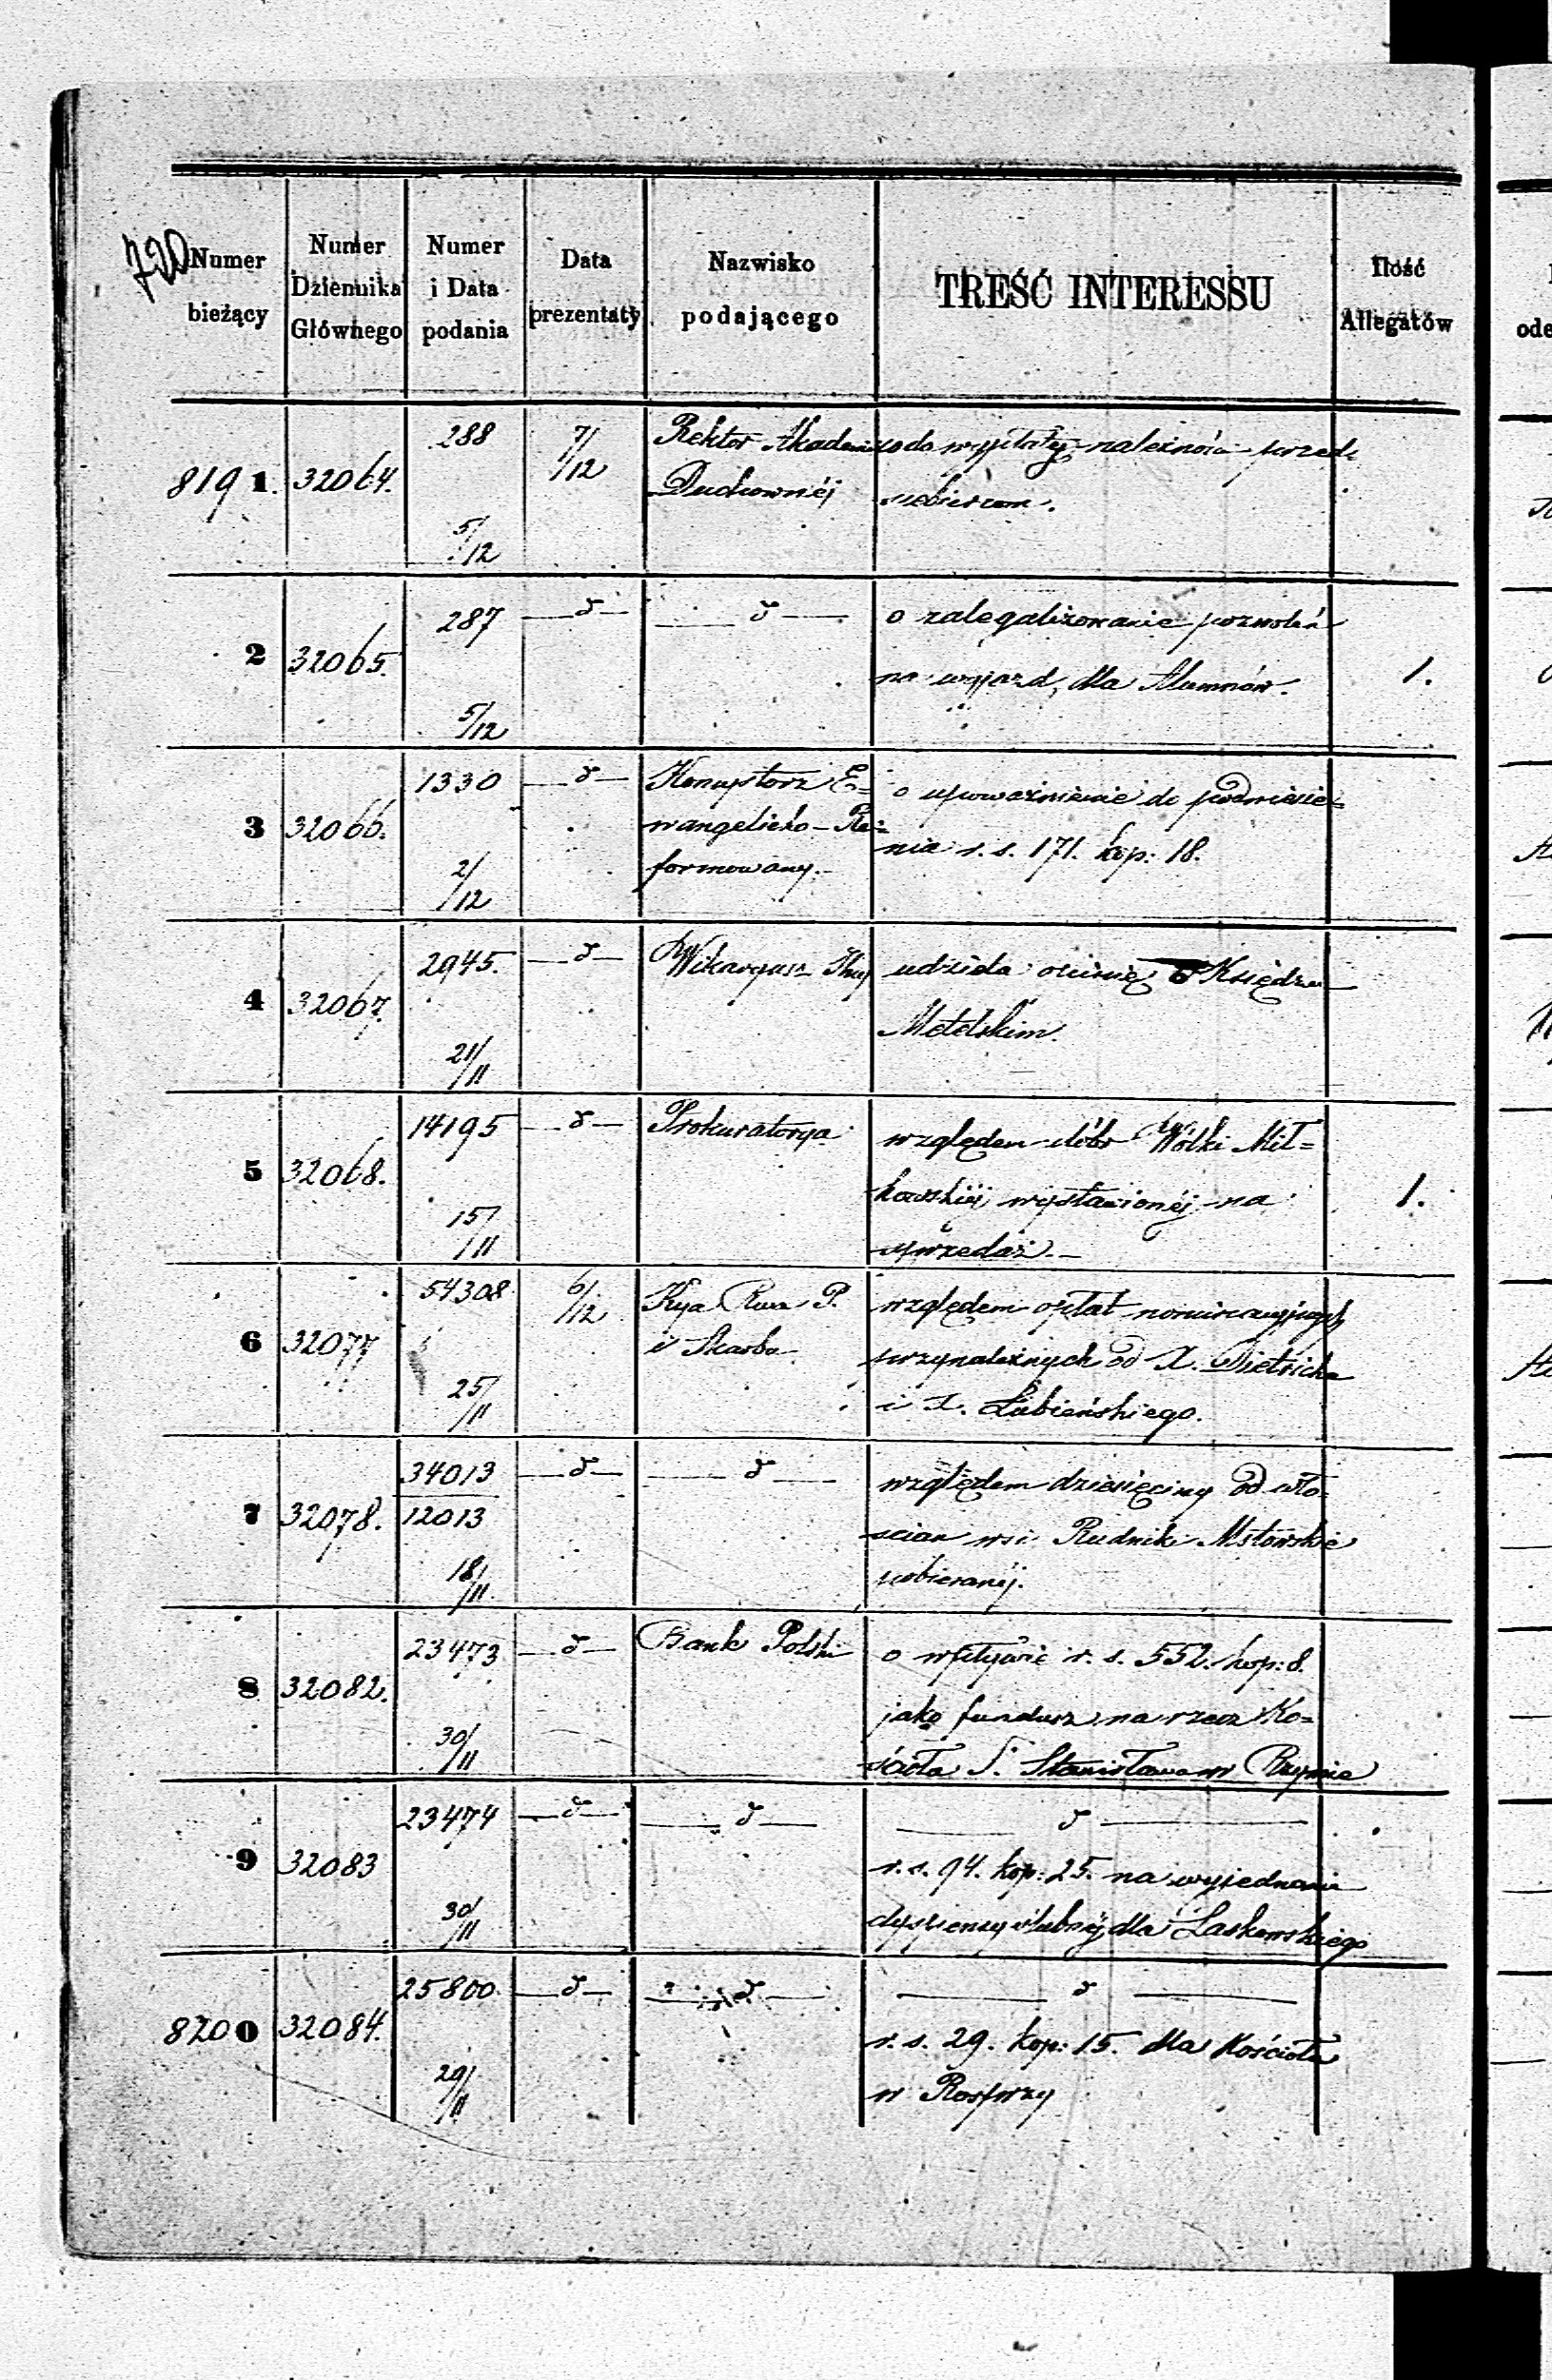 720
Numer bieżący
Numer Dziennika Głównego
Numer i Data podania
Data prezentaty
Nazwisko podającego
TREŚĆ INTERESSU
Ilość Allegatów
8191. 32064. 288 5/12 7/12
Rektor Akademii
Duchownéj
co do wypłaty należności przed-
2 32065. 287 5/12 —d— —d—
o zalegalizowanie pozwoleń
na wyjazd, dla Alumnów.
1.
3 32066. 1330 2/12 —d—
Konsystorz E=
wangelicko-Re=
formowany.
o upoważnienie do podniesie=
nia r. s. 171. kop: 18.
4 32067. 2945. 21/11 —d—
Wikaryusz
udziela opinię o Księdzu
Metelskim.
5 32068. 14195 15/11 —d—
Prokuratorya
względem dóbr Wólki Mił=
kowskiéj wystawionéj na
sprzedaż.
1.
6 32077 54308 25/11 6/12
Ksya Rzą. P.
i Skarbu
względem opłat nominacyjnych
przynależnych od X. Dietricha
i X. Łubieńskiego.
7 32078. 34013
12013 18/11 —d— —d—
względem dziesięciny od wło-
ścian wsi Rudnik Mstowskie
pobieranéj.
8 32082. 23473 30/11 —d—
Bank Polski
o wpływie r. s. 552. kop: 8.
jako fundusz na rzecz Ko=
ścioła S. Stanisława w Rzymie
9 32083 23474 30/11 —d— —d— —d—
r. s. 94. kop: 25. na wyjednanie
dyspensy ślubnéj dla Laskowskiego
8200 32084. 25800 29/11 —d— —d— —d—
r. s. 29. kop: 15. dla Kościoła
w Rosprzy
ode